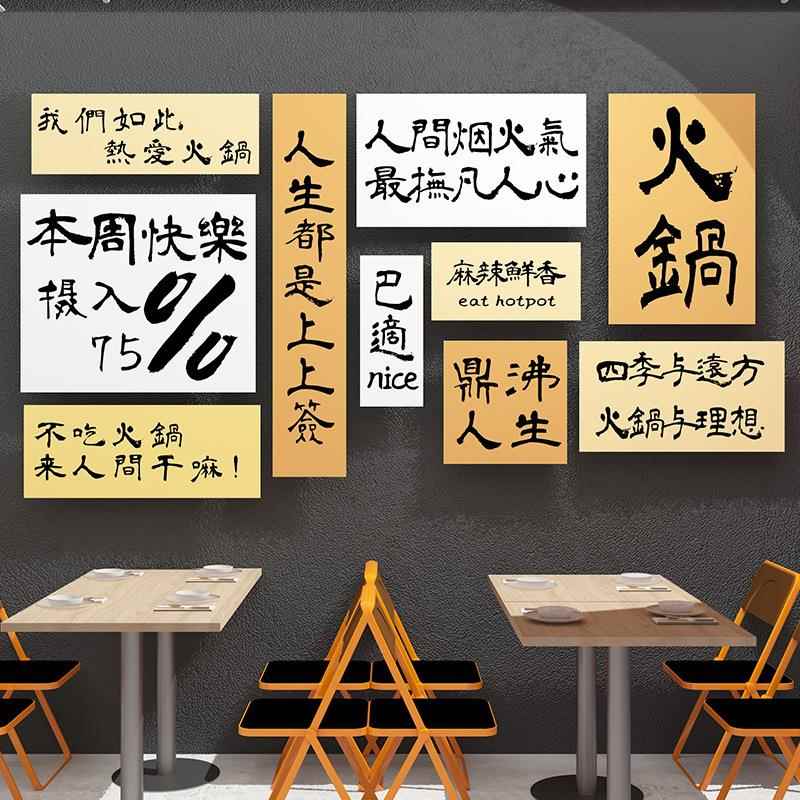 我們如此
熱愛火鍋
本周快樂
摄入%
75
不吃火鍋
来人間干嘛！
人生都是上上簽
人間烟火氣
最撫凡人心
巴適
nice
麻辣鮮香
eat hotpot
鼎沸
人生
火鍋
四季与遠方
火鍋与理想